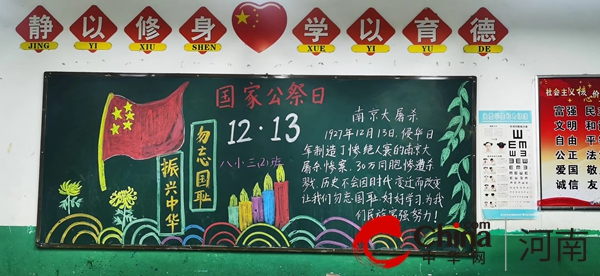 静以修身
JING YI XIU SHEN
学以育德
XUE YI YU DE
国家公祭日
12·13
八小三(2)班
勿忘国耻
振兴中华
南京大屠杀
1937年12月13日,侵华日
军制造了惨绝人寰的南京大
屠杀惨案,30万同胞惨遭杀
戮,历史不会因时代变迁而改变
让我们勿忘国耻好好学习为我
们民族富强努力!
社会主义核心价
富强 民
文明 和
自由 平
公正 法
爱国 敬
诚信 友
China.com
中华网
河南